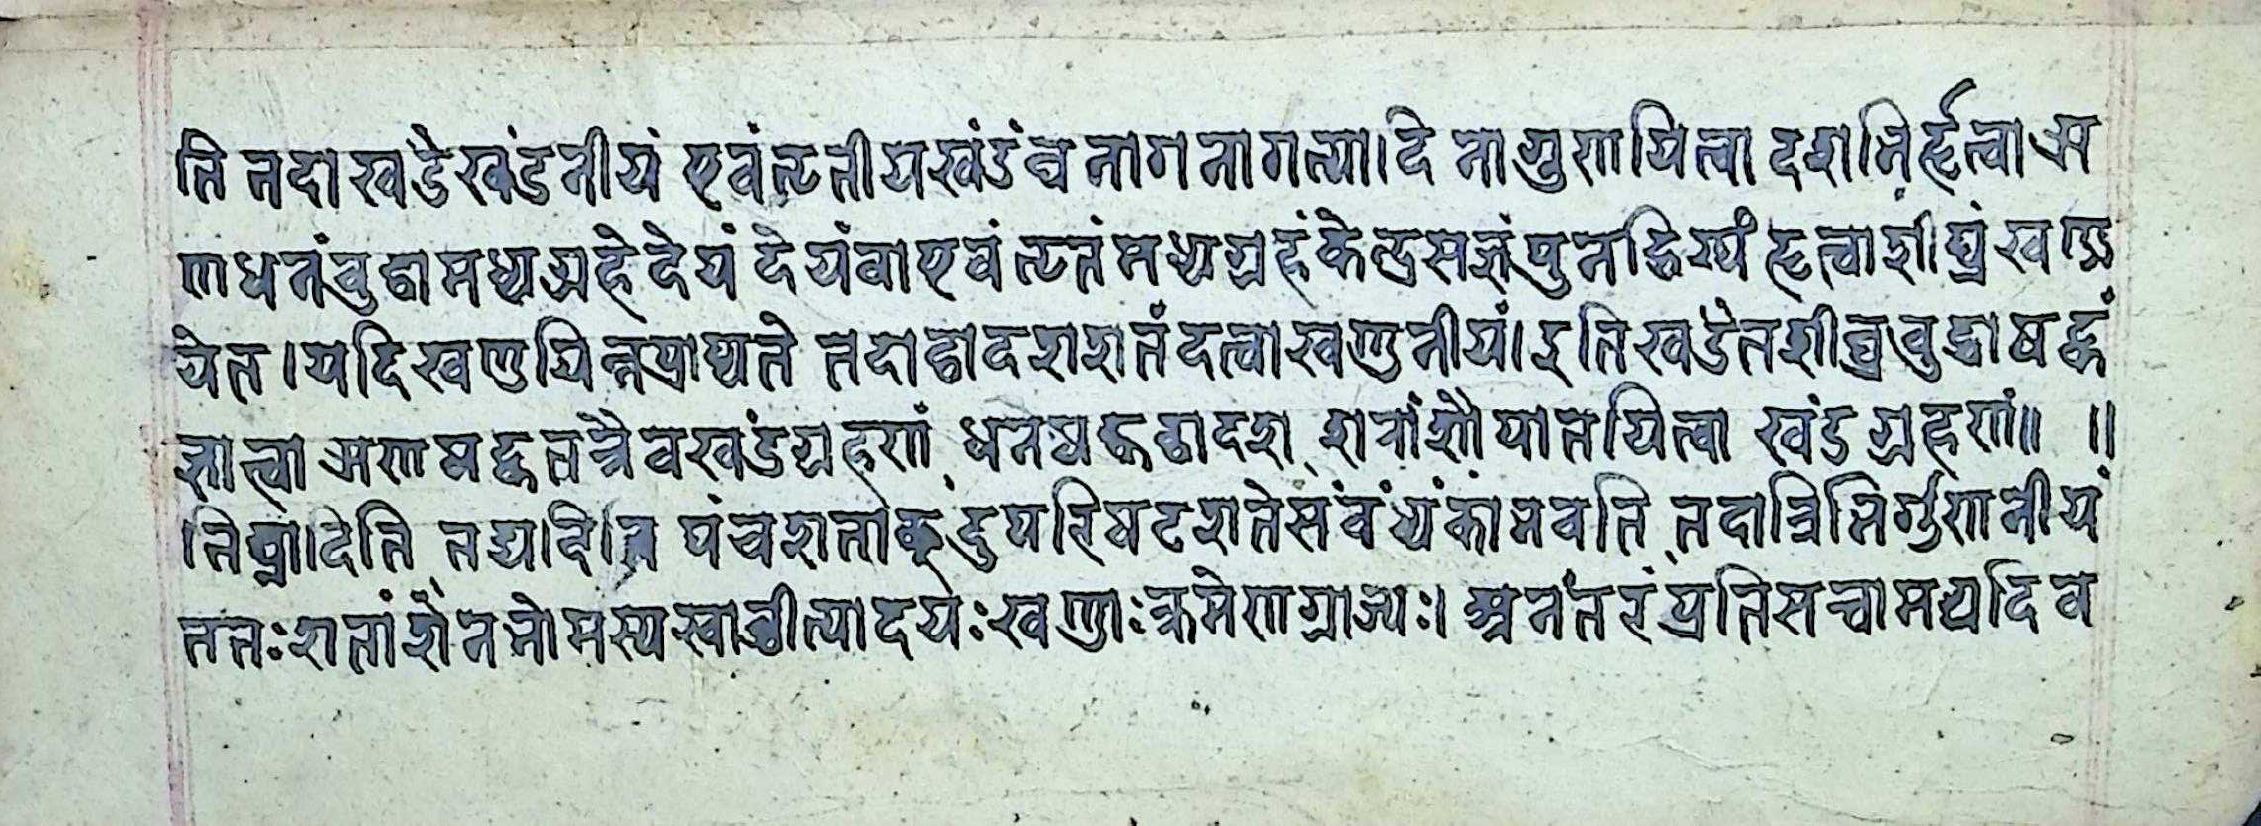 ति तदा खडेखंडनीयं एवंतृतीयखंडंच नागनागत्यादि नागुणयित्वा दशभिर्हृत्वा ऋ
णधनंबुद्वामध्यग्रहे देयं देयंवा एवं तृतंमध्यग्रहंकेन्द्रसज्ञंपुनद्विग्घ्नं हृत्वाशीघ्रंखण्ड
येत । यदि खण्डयित्नप्राप्यते तदाद्वादशशतंदत्वाखण्डनीयं। इति खडेनशीघ्रबुद्वाषट्कं
ज्ञात्वा ऋणषट्कतत्रैवखंडंग्रहणं धनषट्कद्वादश शत्रांशोपातयित्वा खंडग्रहणं॥ ॥
पंचशतांकदुपरिषटशतेसंबंध्यंकोभवति तदात्रिभिर्गुणनीयं
ततः शतांशेनभोमस्य खाब्धीत्यादयः खण्डाः क्रमेणग्राज्यः। अनंतरंप्रतिसन्वामध्यदिव